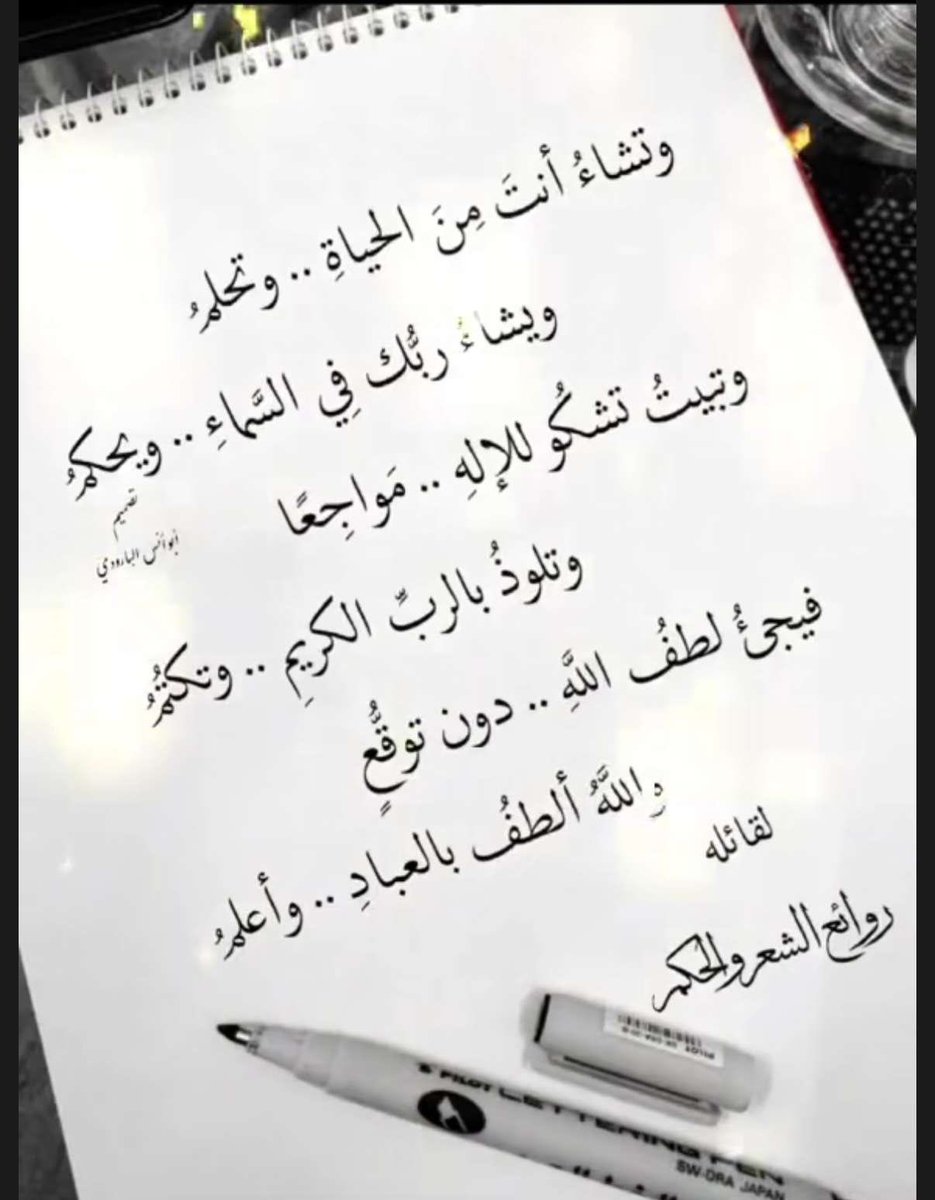 وتشاءُ أنتَ مِنَ الحياةِ .. وتحلمُ
ويشاءُ ربُّك فِي السَّماءِ .. ويحكمُ
وتبيتُ تشكُو للإلهِ .. مَواجِعًا
تصميم
أبو أنس البارودي
وتلوذُ بالربِّ الكريمِ .. وتكتُمُ
فيجئُ لطفُ اللَّهِ .. دون توقُّعٍ
واللَّهُ ألطفُ بالعبادِ .. وأعلمُ
لقائله
روائع الشعر والحكم
PILOT
PILOT LETTERING PEN
SW-DRA JAPAN